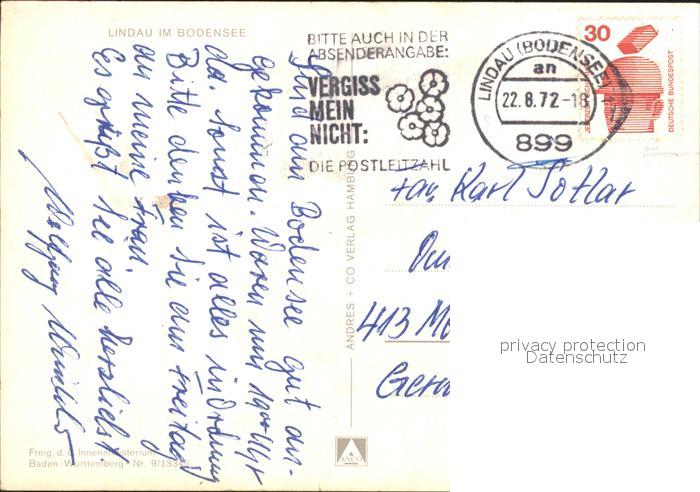 LINDAU IM BODENSEE
BITTE AUCH IN DER
ABSENDERANGABE:
VERGISS
MEIN
NICHT:
DIE POSTLEITZAHL
LINDAU (BODENSEE)
an
22.8.72-18
899
30
JEDERZEIT SICHERHEIT
DEUTSCHE BUNDESPOST
Sind am Bodensee gut an-
gekommen. Waren um 14⁰⁰ Uhr
da. Sonst ist alles in Ordnung
Bitte denken Sie am Freitag
an meine Frau.
Es grüßt Sie alle herzlichst
Wolfgang
Fam. Karl
413 Mo
ANDRES + CO VERLAG HAMBURG
ANCO
Freig. d. d. Innenministerium
Baden-Württemberg · Nr. 9/13345
privacy protection
Datenschutz